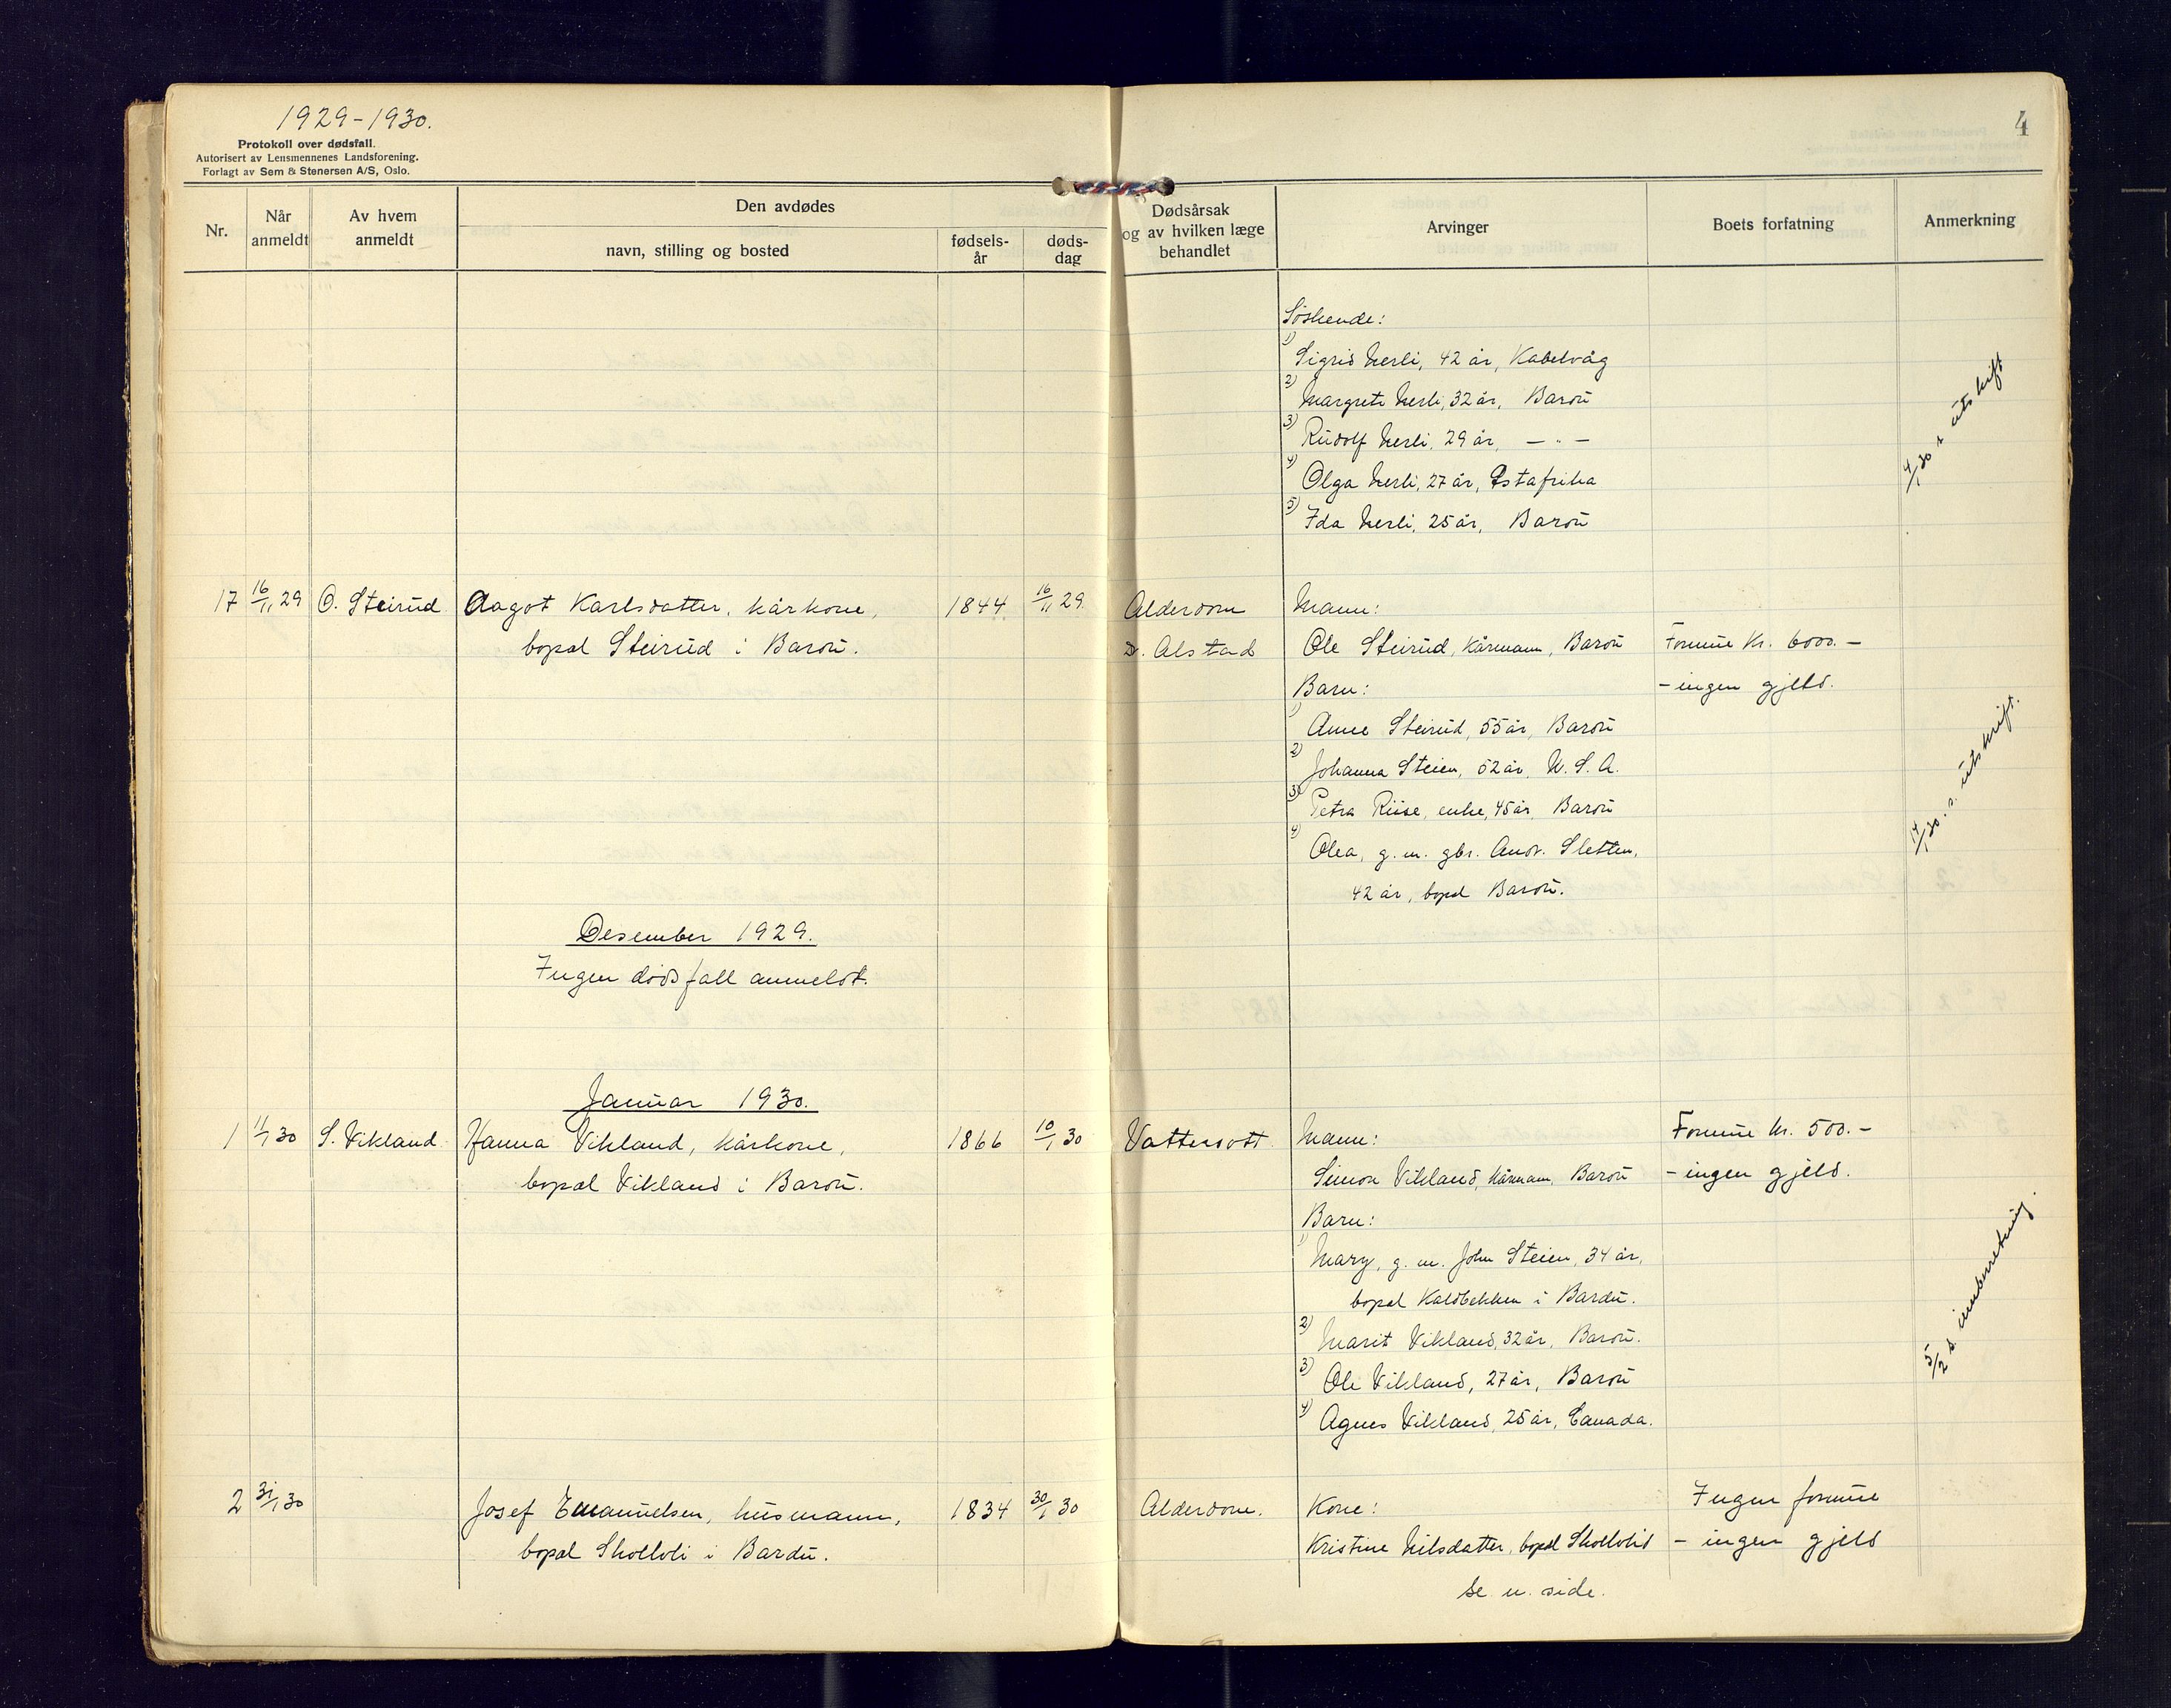 1929-1930.
Protokoll over dødsfall.
Autorisert av Lensmennenes Landsforening.
Forlagt av Sem & Stenersen A/S, Oslo.
4
Nr.
Når anmeldt
Av hvem anmeldt
Den avdødes
navn, stilling og bosted
fødsels-år
døds-dag
Dødsårsak og av hvilken læge behandlet
Arvinger
Boets forfatning
Anmerkning
Søskende:
1) Sigrid Nerli, 42 år, Kabelvåg
2) Margrete Nerli, 32 år, Bardu
3) Rudolf Nerli, 29 år, — " —
4) Olga Nerli, 27 år, Østafrika
5) Ida Nerli, 25 år, Bardu
4/1 30 s. utskrift
17 16/11 29 O. Steirud Aagot Karlsdatter, kårkone, 1844 16/11 29 Alderdom Mann:
bopæl Steirud i Bardu. D. Alstad Ole Steirud, kårmann, Bardu Formue kr. 6000.-
Barn: - ingen gjeld.
1) Anne Steirud, 55 år, Bardu
2) Johanna Steien, 52 år, U.S.A.
3) Petra Riise, enke, 45 år, Bardu
4) Olea, g.m. gbr. Andr. Sletten,
42 år, bopæl Bardu.
14/1 30. s. utskrift.
Desember 1929.
Ingen dødsfall anmeldt.
Januar 1930.
1 11/1 30 S. Vikland Hanna Vikland, kårkone, 1866 10/1 30 Vattersott Mann: Formue kr. 500.-
bopæl Vikland i Bardu. Simon Vikland, kårmann, Bardu - ingen gjeld.
Barn:
1) Mary, g.m. John Steien, 34 år,
bopæl Kaldbekken i Bardu.
2) Marit Vikland, 32 år, Bardu.
3) Ole Vikland, 27 år, Bardu
4) Agnes Vikland, 25 år, Canada.
5/2 s. innberetning.
2 31/1 30 Josef Emanuelsen, husmann, 1834 30/1 30 Alderdom. Kone: Ingen formue
bopæl Skolloli i Bardu. Kristine Nilsdatter, bopæl - ingen gjeld
Se n. side.